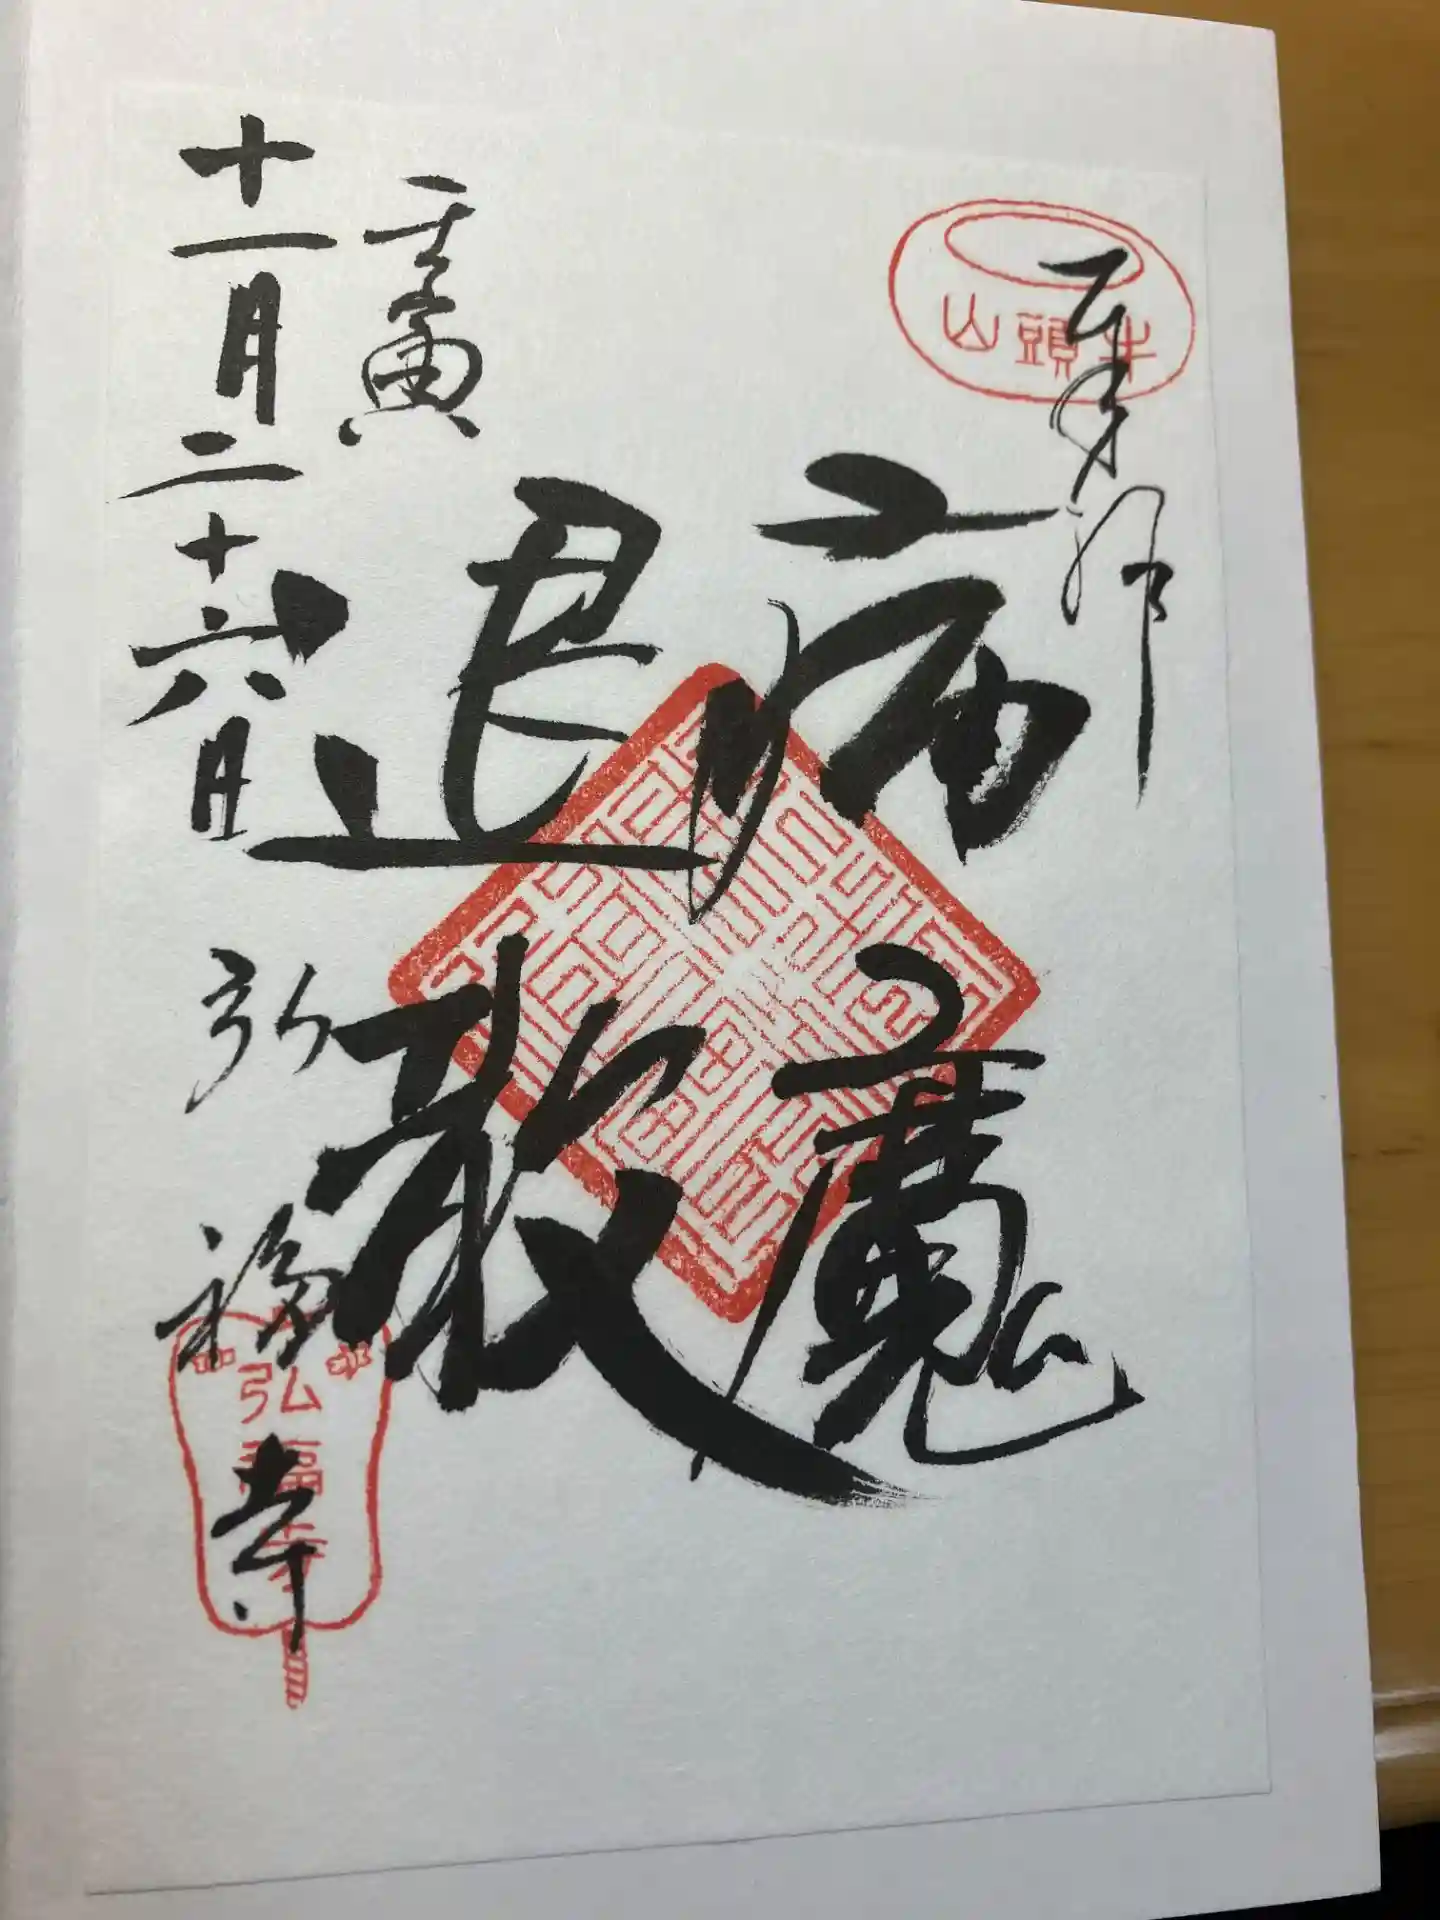 奉拝
牛頭山
病魔
退散
壬寅
十一月二十六日
弘福寺
弘福寺